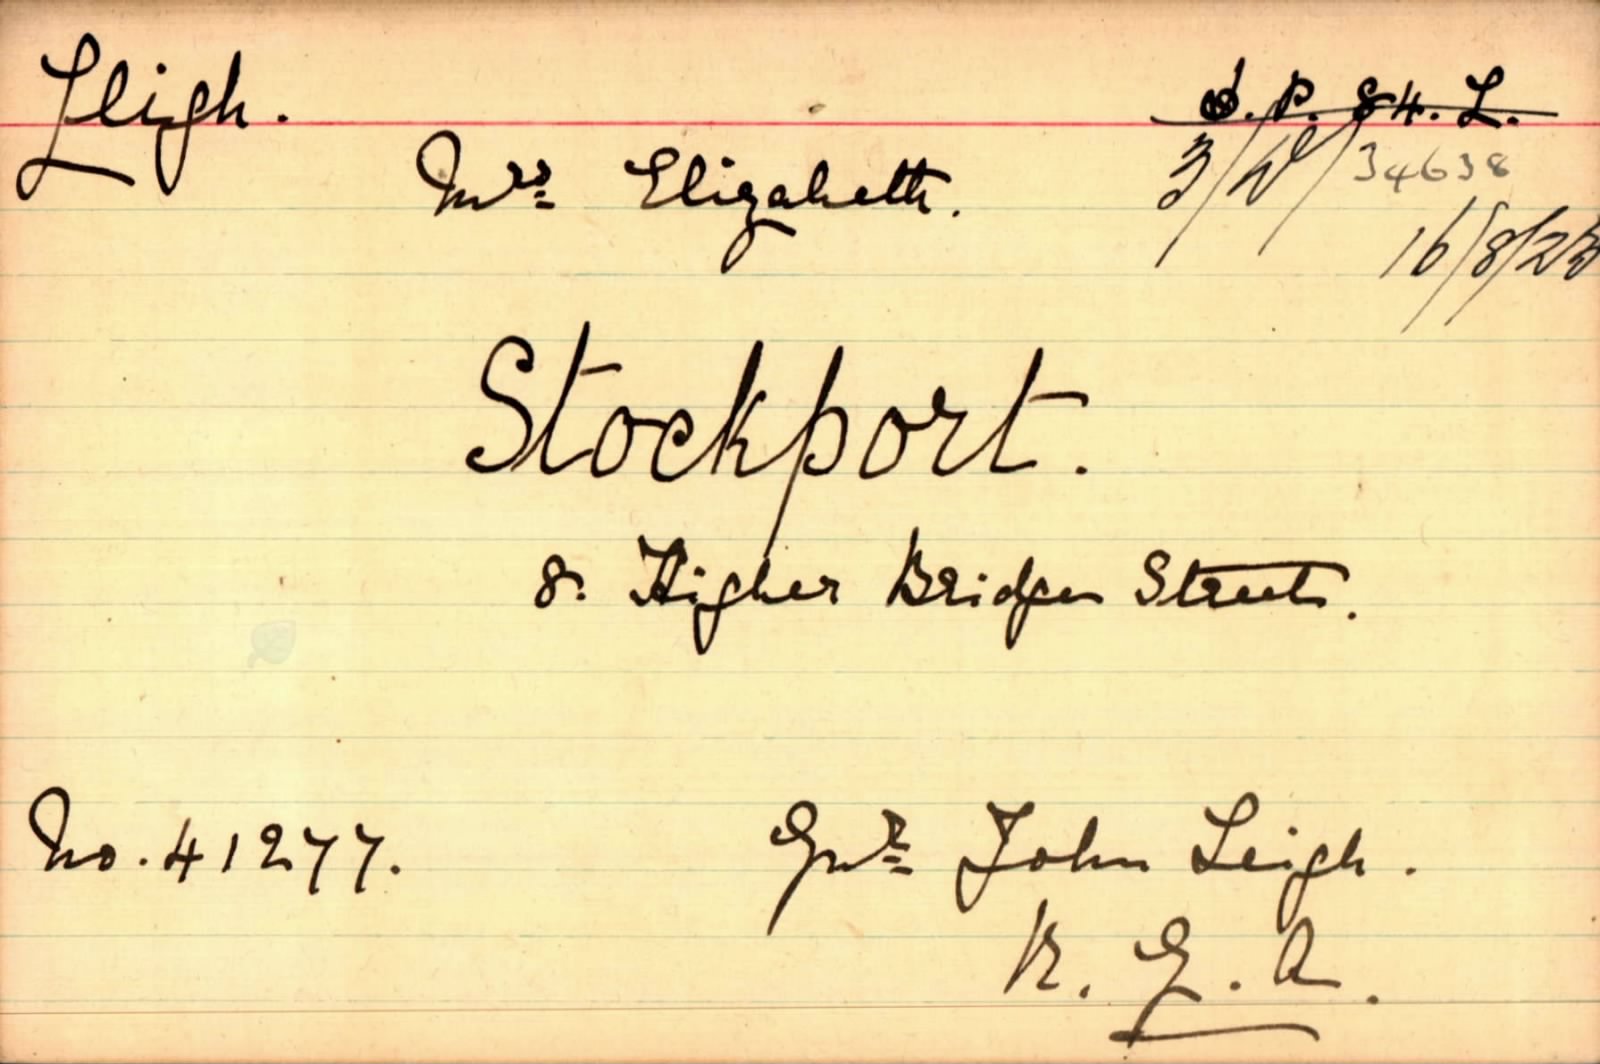 Leigh.
S. P. 84. L.
Mrs Elizabeth.
3/W/34638
16/8/23
Stockport.
8. Higher Bridge Street.
No. 41277.
Gnr John Leigh.
R. G. A.